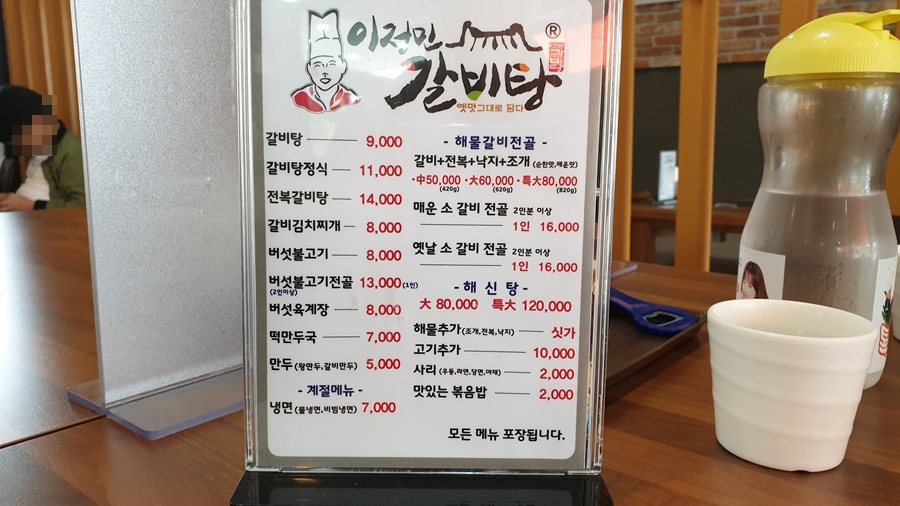 이정민
갈비탕
®
옛맛그대로 담다
갈비탕 9,000
갈비탕정식 11,000
전복갈비탕 14,000
갈비김치찌개 8,000
버섯불고기 8,000
버섯불고기전골 13,000(1인)
(2인이상)
버섯육계장 8,000
떡만두국 7,000
만두(왕만두,갈비만두) 5,000
- 계절메뉴 -
냉면(물냉면,비빔냉면) 7,000
- 해물갈비전골 -
갈비+전복+낙지+조개 (순한맛,매운맛)
·中50,000 ·大60,000 ·특大80,000
(420g) (620g) (820g)
매운 소 갈비 전골 2인분 이상
1인 16,000
옛날 소 갈비 전골 2인분 이상
1인 16,000
- 해 신 탕 -
大 80,000 특大 120,000
해물추가(조개,전복,낙지) 싯가
고기추가 10,000
사리 (우동,라면,당면,야채) 2,000
맛있는 볶음밥 2,000
모든 메뉴 포장됩니다.